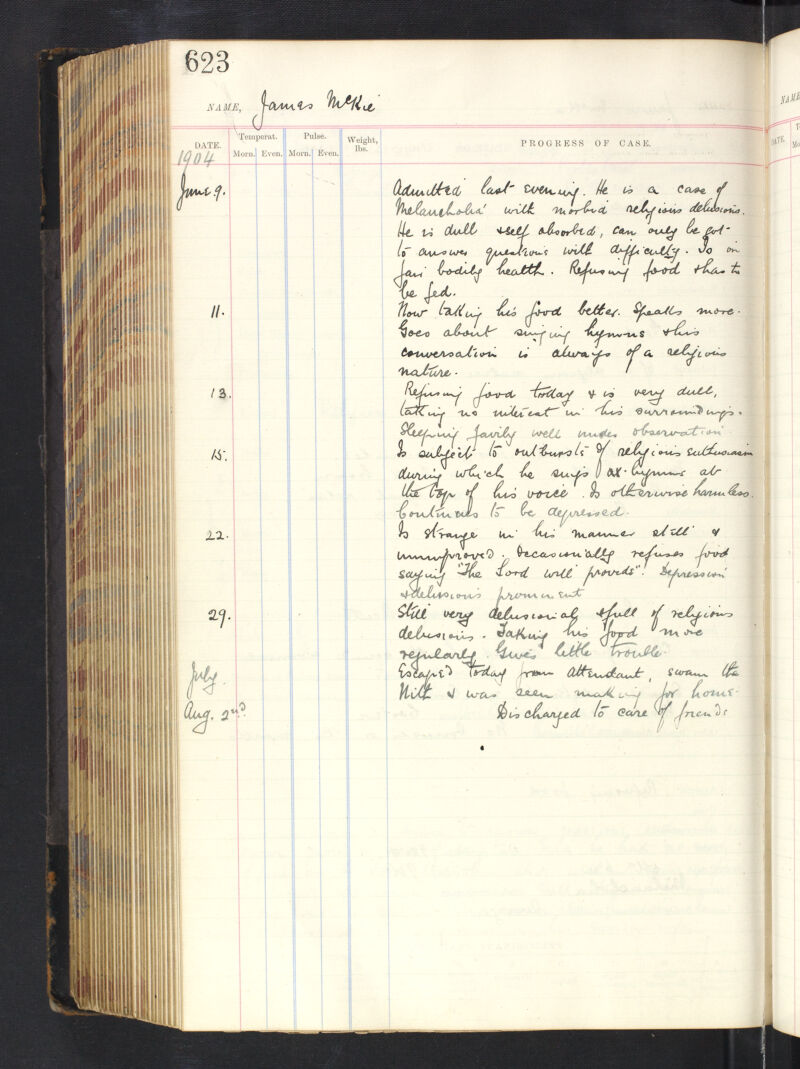 623
NAME, James McKie
DATE. Temperat. Pulse. Weight, lbs. PROGRESS OF CASE.
Morn. Even. Morn. Even.
1904
June 9. Admitted last evening. He is a case of
Melancholia with morbid religious delusions.
He is dull & self absorbed, can only be got
to answer questions with difficulty. Is in
fair bodily health. Refusing food & has to
be fed.
11. Now taking his food better. Speaks more.
Goes about singing hymns & his
conversation is always of a religious
nature.
13. Refusing food today & is very dull,
taking no interest in his surroundings.
Sleeping fairly well under observation
15. Is subject to outbursts of religious enthusiasm
during which he sings hymns at
the top of his voice. Is otherwise harmless.
Continues to be depressed.
22. Is strange in his manner still &
unimproved. Occasionally refuses food
saying "The Lord will provide". Depression
& delusions prominent
29. Still very delusional & full of religious
delusions. Taking his food more
regularly. Gives little trouble.
July. Escaped today from Attendant, swam the
Nith & was seen making for home.
Aug. 2nd. Discharged to care of friends
NAME
DATE.